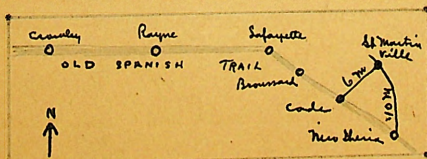 Crowley
Rayne
Lafayette
St Martin
Ville
OLD SPANISH TRAIL
Broussard
6 m
10 m
Cade
New Iberia
N